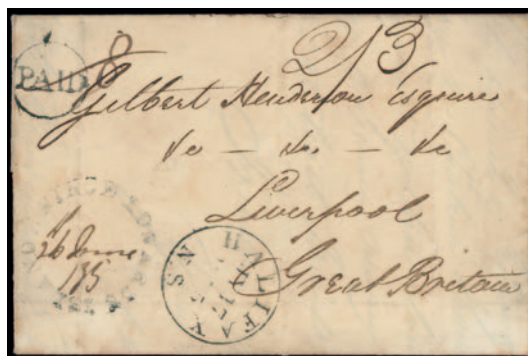 PAID 8
2/3
Gilbert Henderson Esquire
&c — &c — &c
Liverpool
Great Britain
26 June
HALIFAX N S